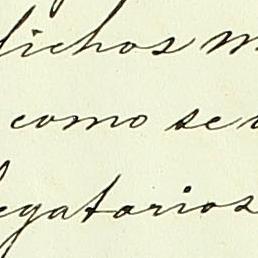 dichos m
como se
legatarios